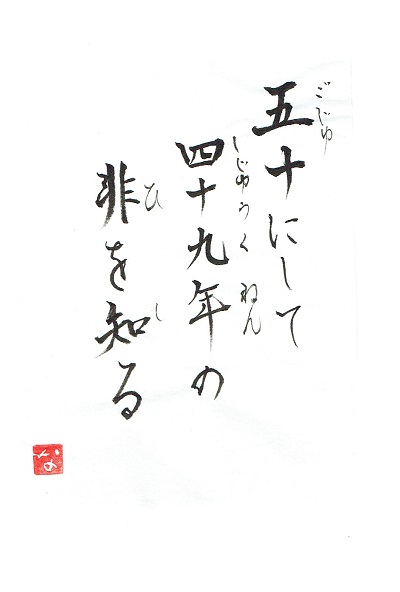 五十にして
ごじゅ
四十九年の
しじゅうく ねん
非を知る
ひ し